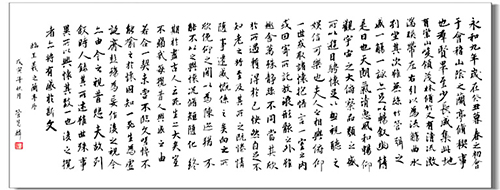 永和九年歲在癸丑暮春之初會
于會稽山陰之蘭亭脩禊事
也羣賢畢至少長咸集此地
有崇山峻領茂林脩竹又有清流激
湍暎帶左右引以為流觴曲水
列坐其次雖無絲竹管弦之
盛一觴一詠亦足以暢敘幽情
是日也天朗氣清惠風和暢仰
觀宇宙之大俯察品類之盛
所以遊目騁懷足以極視聽之
娛信可樂也夫人之相與俯仰
一世或取諸懷抱悟言一室之內
或因寄所託放浪形骸之外雖
趣舍萬殊靜躁不同當其欣
於所遇暫得於己快然自足不
知老之將至及其所之既惓情
隨事遷感慨係之矣向之所
欣俛仰之間以為陳迹猶不
能不以之興懷況脩短隨化終
期於盡古人云死生亦大矣豈
不痛哉每攬昔人興感之由
若合一契未嘗不臨文嗟悼不
能喻之於懷固知一死生為虛
誕齊彭殤為妄作後之視今
亦由今之視昔悲夫故列
敘時人錄其所述雖世殊事
異所以興懷其致一也後之攬
者亦將有感於斯文
臨王羲之蘭亭序
戊寅年秋月